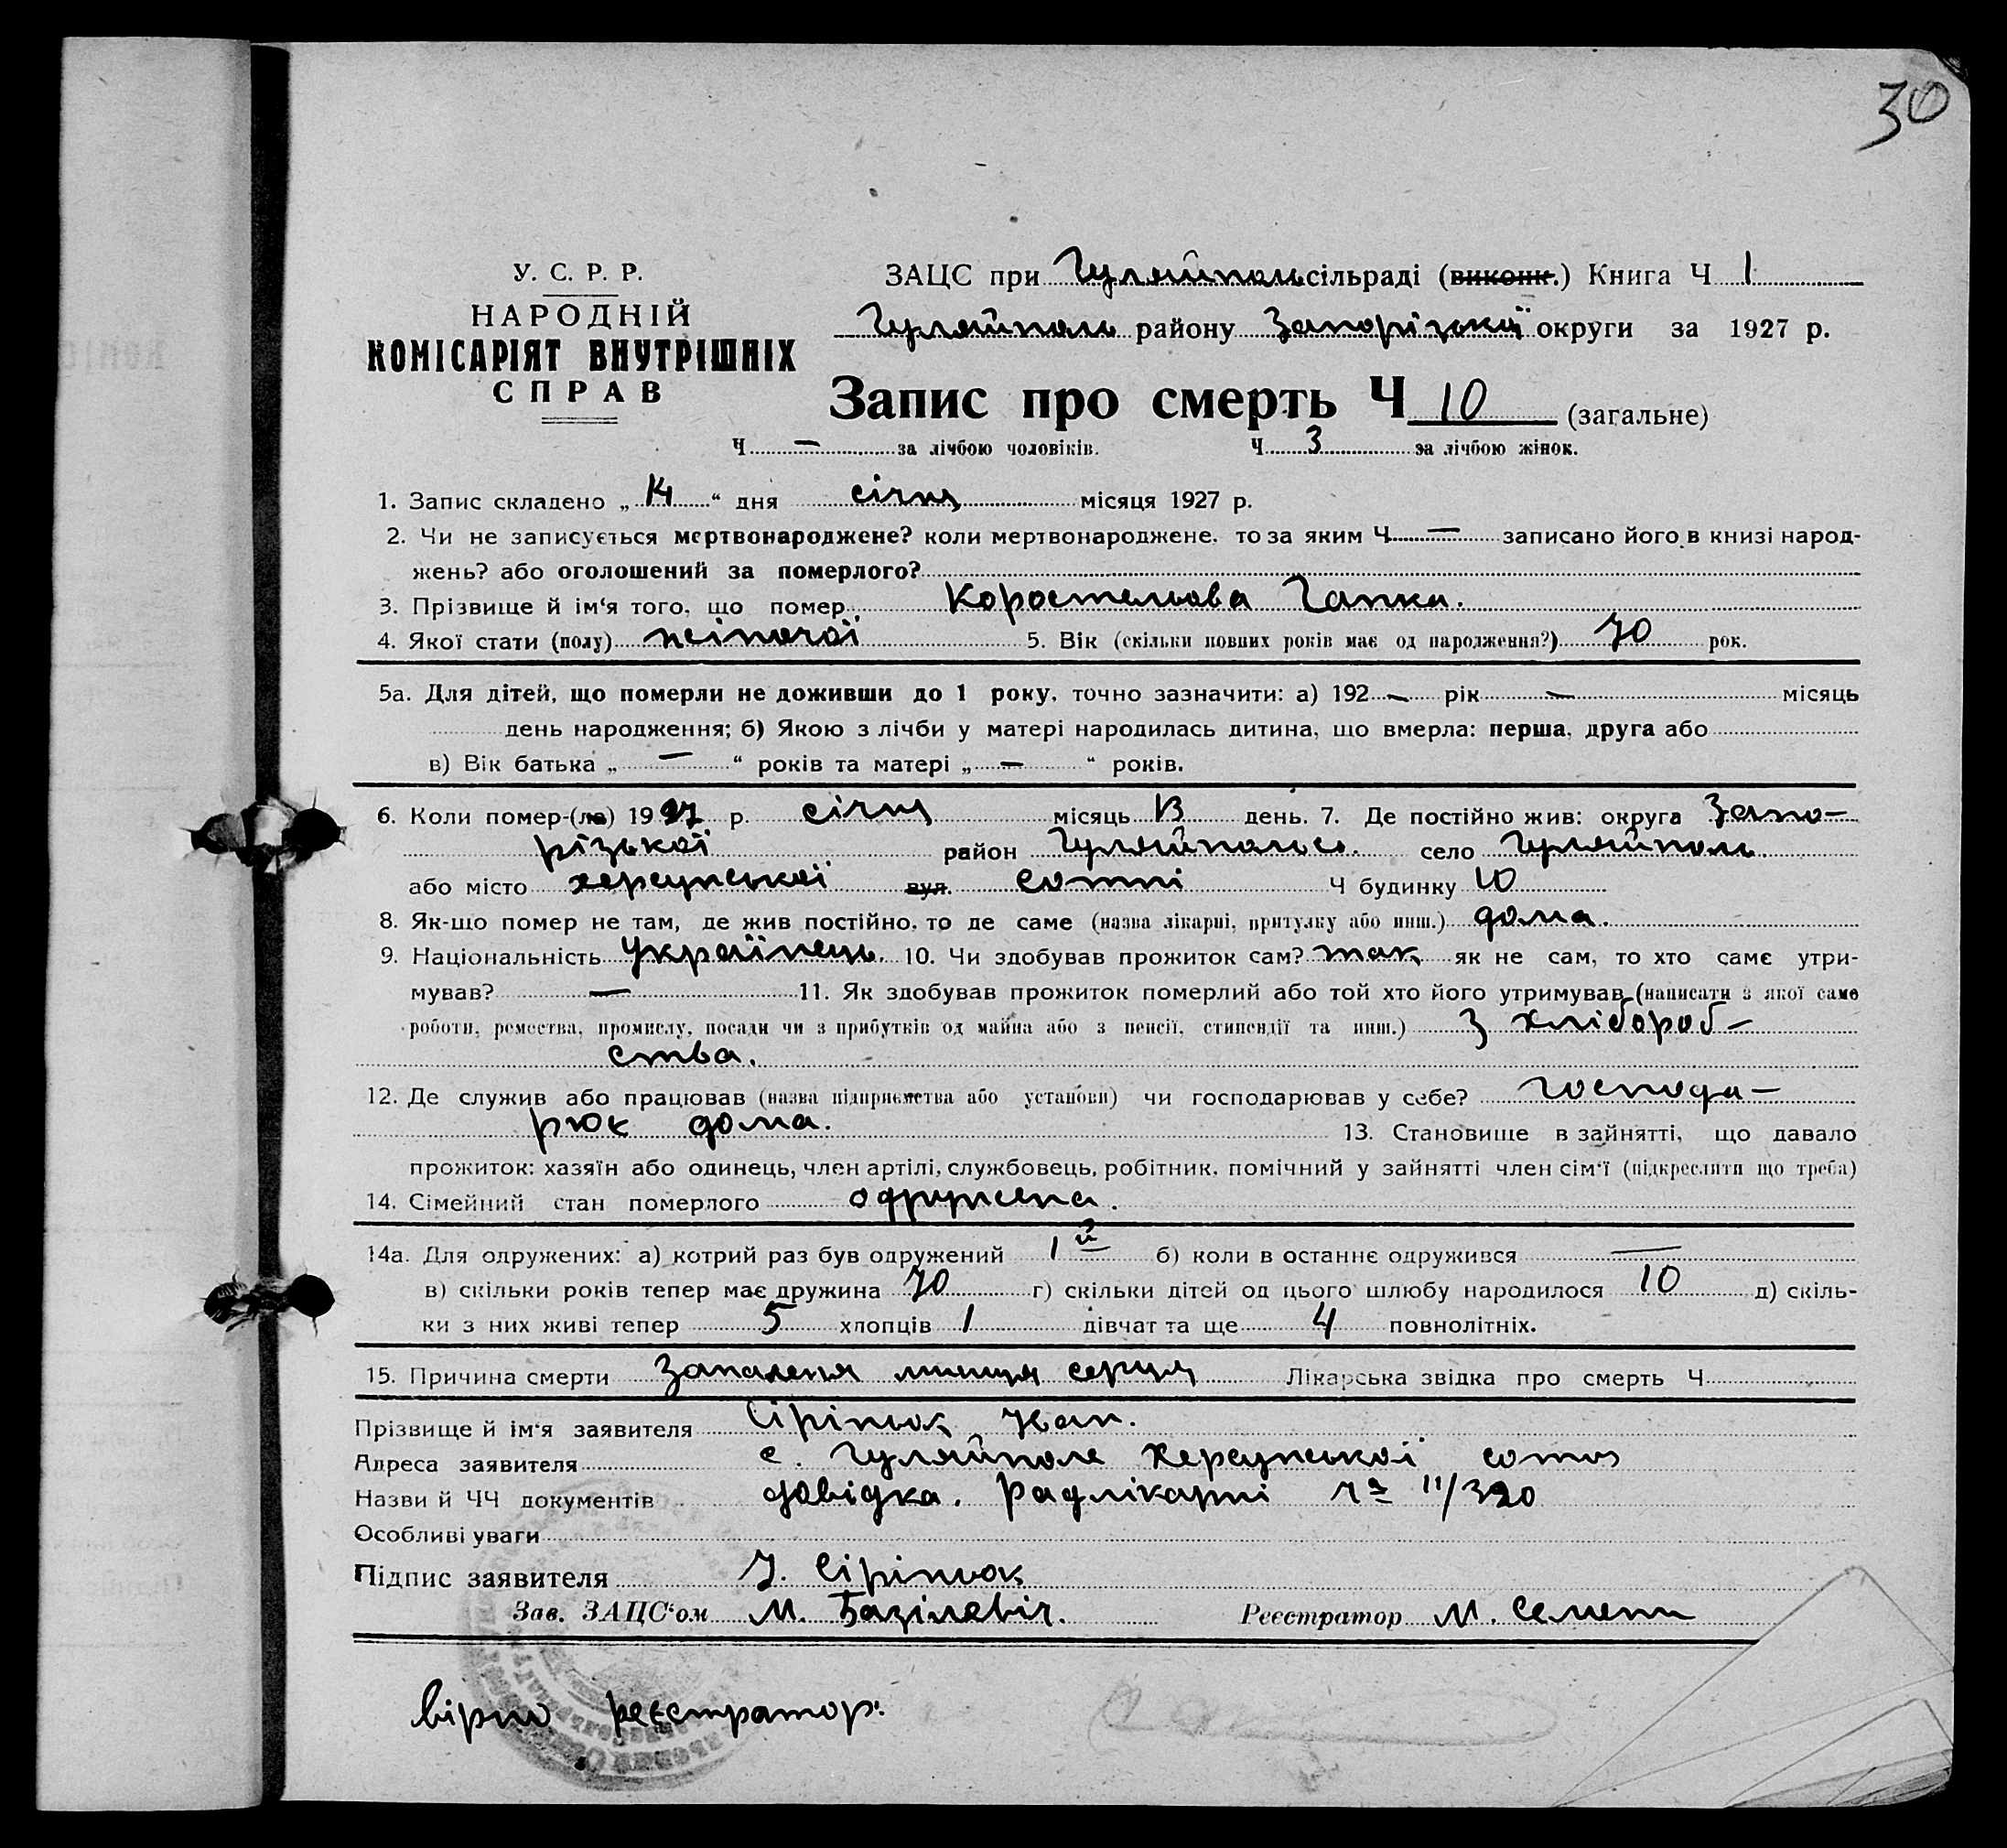 30
У. С. Р. Р.
НАРОДНІЙ
КОМІСАРІЯТ ВНУТРІШНІХ
СПРАВ
ЗАЦС при Гуляйполь сільраді (виконк.) Книга Ч 1
Гуляйполь району Запорізької округи за 1927 р.
Запис про смерть Ч 10 (загальне)
Ч — за лічбою чоловіків. Ч 3 за лічбою жінок.
1. Запис складено „ 14 “ дня січня місяця 1927 р.
2. Чи не записується мертвонароджене? коли мертвонароджене, то за яким Ч — записано його в книзі народ-
жень? або оголошений за померлого?
3. Прізвище й ім‘я того, що помер Коростельова Гапка.
4. Якої стати (полу) жіночої 5. Вік (скільки повних років має од народження?) 70 рок.
5а. Для дітей, що померли не доживши до 1 року, точно зазначити: а) 192 — рік — місяць
день народження; б) Якою з лічби у матері народилась дитина, що вмерла: перша, друга або
в) Вік батька „ — “ років та матері „ — “ років.
6. Коли помер-(ла) 1927 р. січня місяць 13 день. 7. Де постійно жив: округа Запо-
різької район Гуляйпольсь. село Гуляйполь
або місто херсунської вул. сотні Ч будинку 10
8. Як-що помер не там, де жив постійно, то де саме (назва лікарні, притулку або инш.) дома.
9. Національність Українець 10. Чи здобував прожиток сам? так як не сам, то хто саме утри-
мував? — 11. Як здобував прожиток померлий або той хто його утримував (написати з якої саме
роботи, ремества, промислу, посади чи з прибутків од майна або з пенсії, стипендії та инш.) З хлібороб-
ства.
12. Де служив або працював (назва підприємства або установи) чи господарював у себе? господа-
рюк дома. 13. Становище в зайнятті, що давало
прожиток: хазяїн або одинець, член артілі, службовець, робітник, помічний у зайнятті член сім‘ї (підкреслити що треба)
14. Сімейний стан померлого одружена.
14а. Для одружених: а) котрий раз був одружений 1й б) коли в останнє одружився —
в) скільки років тепер має дружина 70 г) скільки дітей од цього шлюбу народилося 10 д) скіль-
ки з них живі тепер 5 хлопців 1 дівчат та ще 4 повнолітніх.
15. Причина смерти Запаленя мишця серця Лікарська звідка про смерть Ч
Прізвище й ім‘я заявителя Сіріньок Іван.
Адреса заявителя с. Гуляйполе Херсунської сотні
Назви й ЧЧ документів довідка. Радлікарні ча 11/320
Особливі уваги
Підпис заявителя І. Сіріньок
Зав. ЗАЦС‘ом М. Базілевіч. Реєстратор М. Семен
вірно реєстратор: